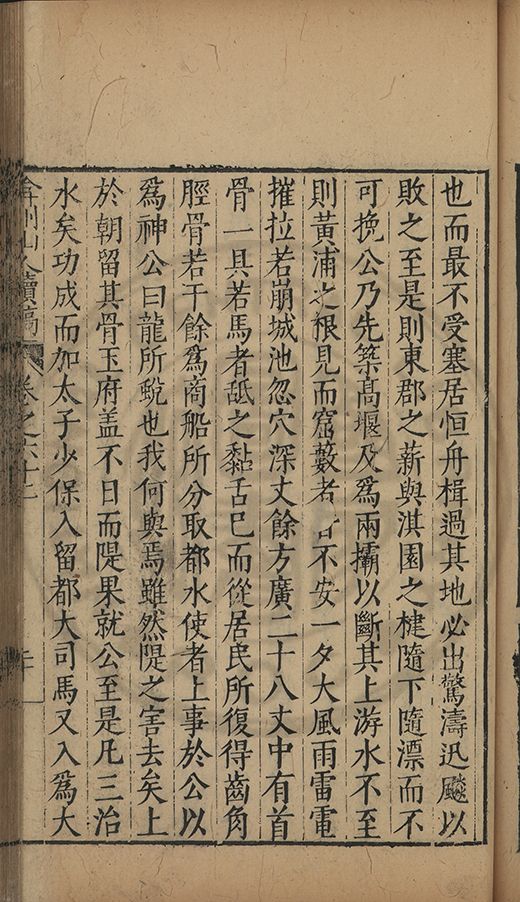 也而最不受塞居恒舟楫過其地必出驚濤迅飈以
敗之至是則東郡之薪與淇園之楗隨下隨漂而不
可挽公乃先築高堰及爲兩壩以斷其上游水不至
則黃浦之根見而窟藪者不安一夕大風雨雷電
摧拉若崩城池忽穴深丈餘方廣二十八丈中有首
骨一具若馬者舐之黏舌已而從居民所復得齒角
脛骨若干餘爲商船所分取都水使者上事於公以
爲神公曰龍所蛻也我何與焉雖然隄之害去矣上
於朝留其骨玉府盖不日而隄果就公至是凡三治
水矣功成而加太子少保入留都大司馬又入爲大
弇州山人續稿 卷之六十二